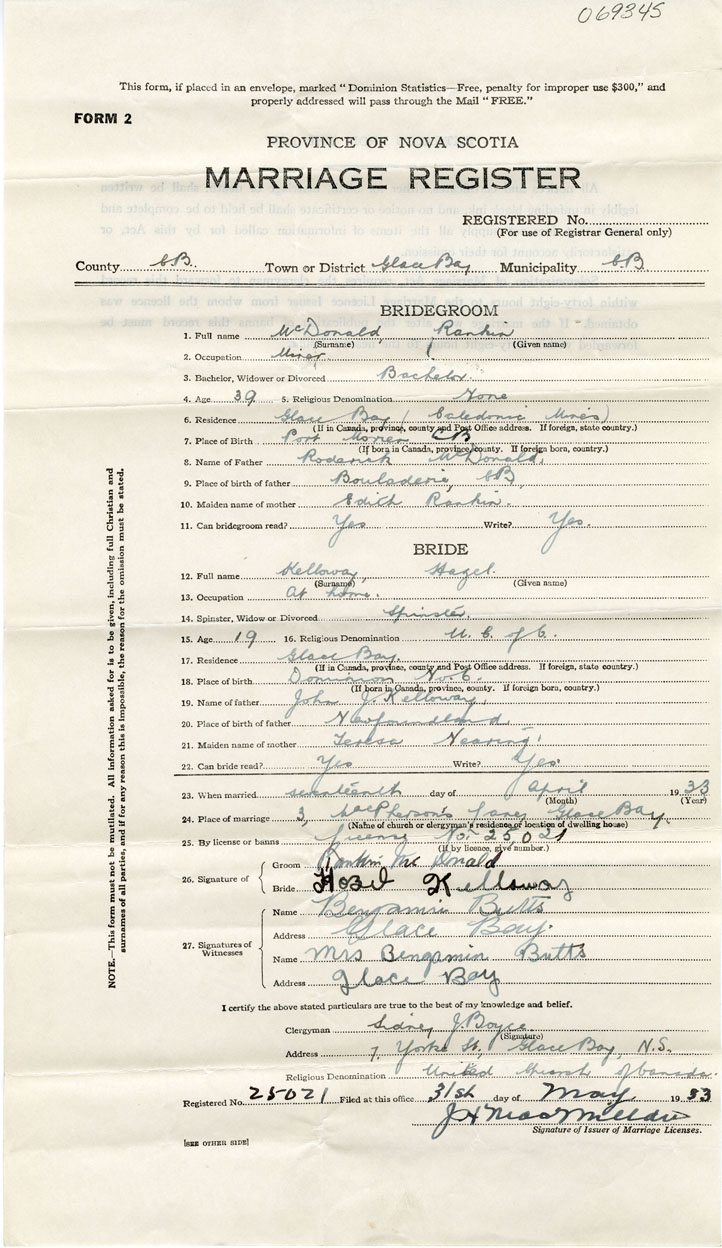 069345
This form, if placed in an envelope, marked "Dominion Statistics—Free, penalty for improper use $300," and
properly addressed will pass through the Mail "FREE."
FORM 2
PROVINCE OF NOVA SCOTIA
MARRIAGE REGISTER
REGISTERED No.
(For use of Registrar General only)
County C.B. Town or District Glace Bay Municipality C.B.
BRIDEGROOM
1. Full name McDonald, Rankin
(Surname) (Given name)
2. Occupation Miner
3. Bachelor, Widower or Divorced Bachelor
4. Age 39 5. Religious Denomination None
6. Residence Glace Bay (Caledonia Mines)
(If in Canada, province, county and Post Office address. If foreign, state country.)
7. Place of Birth Port Morien CB
(If born in Canada, province, county. If foreign born, country.)
8. Name of Father Roderick McDonald
9. Place of birth of father Bouladerie, CB
10. Maiden name of mother Edith Rankin
11. Can bridegroom read? Yes Write? Yes.
BRIDE
12. Full name Kelloway, Hazel.
(Surname) (Given name)
13. Occupation At home.
14. Spinster, Widow or Divorced Spinster
15. Age 19 16. Religious Denomination U. C. of C.
17. Residence Glace Bay.
(If in Canada, province, county and Post Office address. If foreign, state country.)
18. Place of birth Dominion No. 6.
(If born in Canada, province, county. If foreign born, country.)
19. Name of father John J. Kelloway
20. Place of birth of father Newfoundland
21. Maiden name of mother Teresa Nearing
22. Can bride read? Yes Write? Yes.
23. When married seventeenth day of April 1933
(Month) (Year)
24. Place of marriage 3, MacPherson's Lane, Glace Bay.
(Name of church or clergyman's residence or location of dwelling house)
25. By license or banns license No. 25,021
(If by licence, give number.)
26. Signature of
Groom Rankin Mc Donald
Bride Hazel Kelloway
27. Signatures of Witnesses
Name Benjamin Butts
Address Glace Bay.
Name Mrs Bengamin Butts
Address Glace Bay
I certify the above stated particulars are true to the best of my knowledge and belief.
Clergyman Sidney J. Boyce
(Signature)
Address 7, Yorke St., Glace Bay, N.S.
Religious Denomination United Church of Canada.
Registered No. 25021 Filed at this office 31st day of May 1933
J H MacMillan
Signature of Issuer of Marriage Licenses.
[SEE OTHER SIDE]
NOTE.—This form must not be mutilated. All information asked for is to be given, including full Christian and
surnames of all parties, and if for any reason this is impossible, the reason for the omission must be stated.